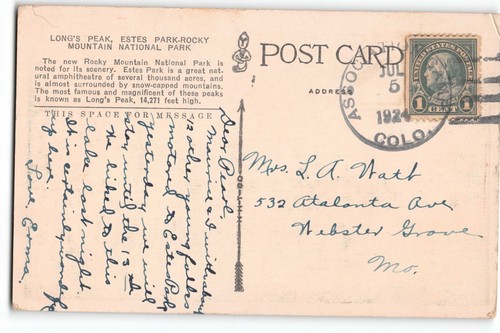 LONG'S PEAK, ESTES PARK-ROCKY
MOUNTAIN NATIONAL PARK
The new Rocky Mountain National Park is
noted for its scenery. Estes Park is a great nat-
ural amphitheatre of several thousand acres, and
is almost surrounded by snow-capped mountains.
The most famous and magnificent of these peaks
is known as Long's Peak, 14,271 feet high.
THIS SPACE FOR MESSAGE
Dear Pearl,
and I with about
12 other young folks
motored to Estes Park
yesterday we will
stay until the 13th
We hiked to this
lake last night.
It is certainly grand
up here.
Love, Erma.
POST CARD
ADDRESS
JUL
5
1924
COLO.
UNITED STATES POSTAGE
1 CENT 1
Mrs. L. A. Watt
532 Atalanta Ave
Webster Grove
Mo.